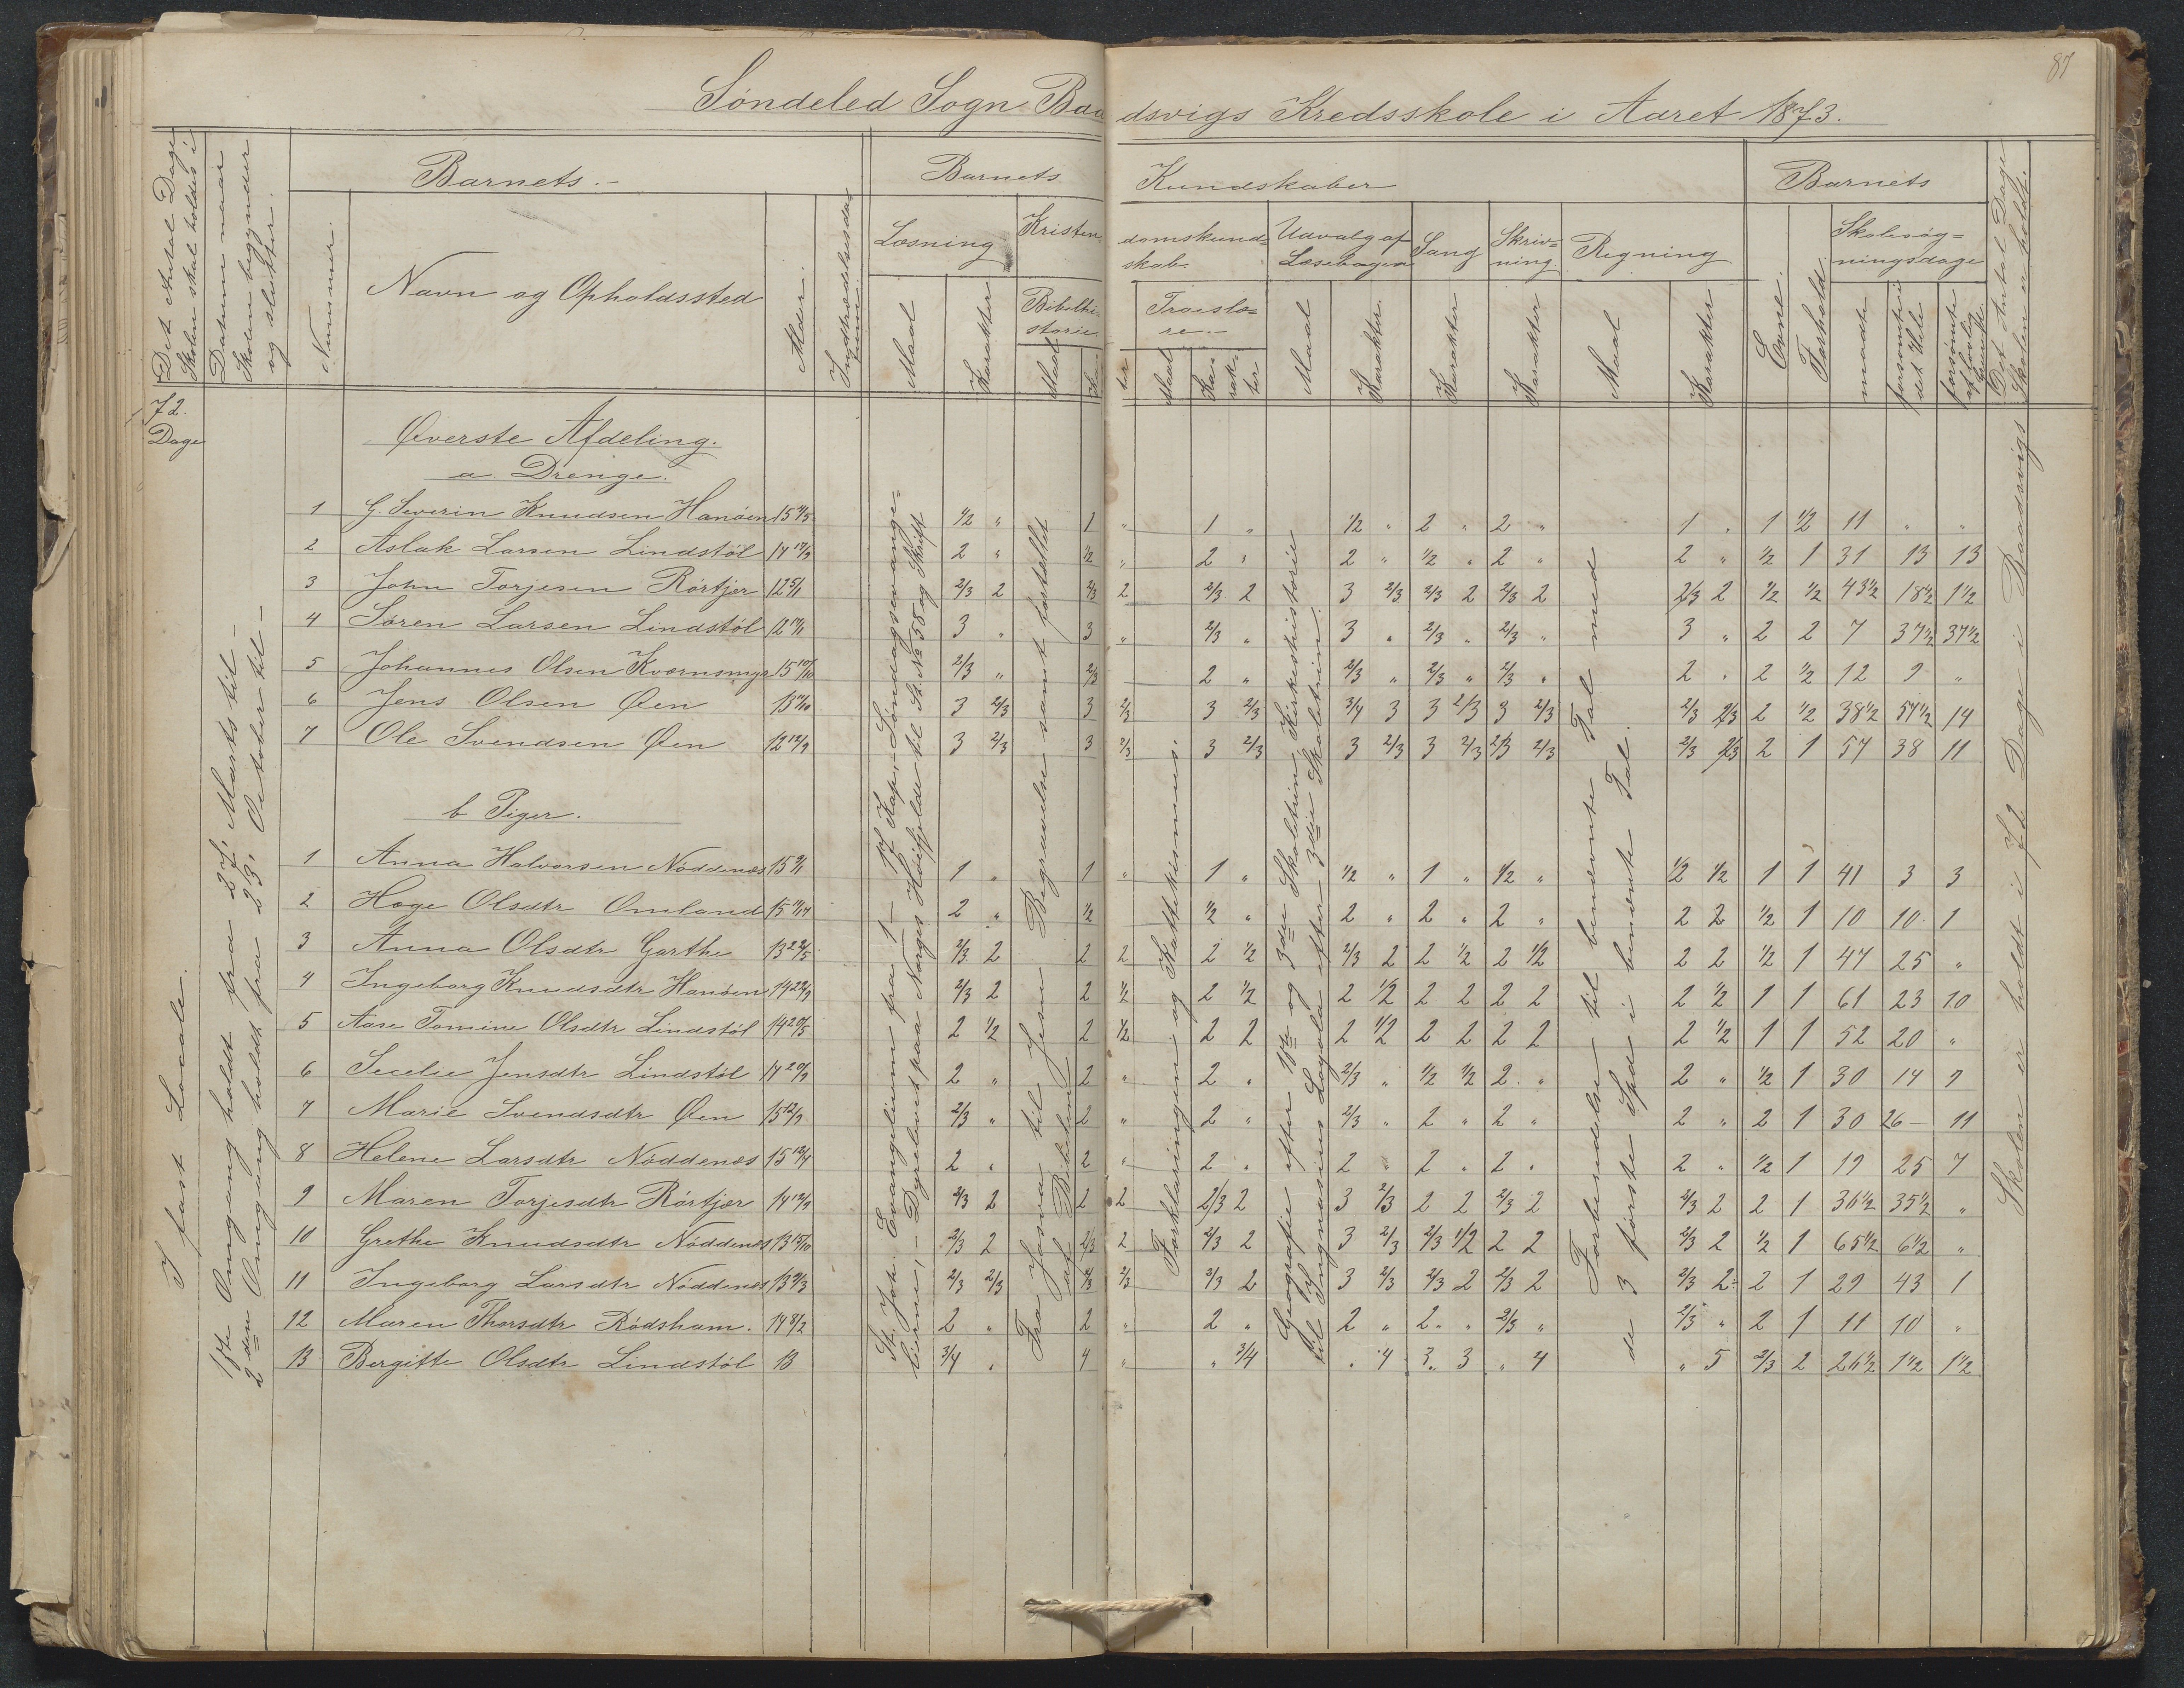 87
Söndeled Sogn Baadsvigs Kredsskole i Aaret 1873.
Det Antal Dage Skolen skal holdes i
Datum naar Skolen begynder og slutter.
Barnets.
Nummer.
Navn og Opholdssted
Alder.
Indtrædelsesdatum
Barnets Kundskaber
Læsning
Maal
Karakter
Kristendomskundskab.
Bibelhistorie
Maal
Troeslære.
Maal
Karakter
Udvalg af Læsebogen
Maal
Karakter
Sang
Karakter
Skrivning
Karakter
Regning
Maal
Karakter
Barnets
Evne.
Forhold.
Skolesøgningsdage
mødte
forsømte i det Hele
forsømte af lovlig Grund
Det Antal Dage Skolen er holdt.
72 Dage
I fast Locale.
1ste Omgang holdt fra 27, Marts til –
2den Omgang holdt fra 23, October til –
St. Joh. Evangelium fra 1 – 17 Kap, – Søndagsevangelierne, – Dyrelivet paa Norges Høifjelde til St. No 58 og Skrift
Fra Josva til Jesu Begravelse samt fortællt af Bibelen
Forklaringen og Kattekismus.
Geografie efter 1ste og 3die Skoletrin, Kirkeshistorie til Ingnasius Loyola efter 3die Skoletrin.
Forberedelse til benævnte Tal med de 3 første Spec i benævnte Tal.
Skolen er holdt i 72 Dage i Baadsvigs
Øverste Afdeling.
a Drenge.
1 G. Severin Knudsen Hanöen 15 1/2 " 1 " 1 " 1/2 " 2 " 2 " 1 " 1 1/2 11 " "
2 Aslak Larsen Lindstøl 14 17/9 2 " 1/2 " 2 " 2 " 1/2 " 2 " 2 " 1/2 1 31 13 13
3 John Torjesen Rörtjer 12 5/1 2/3 2 2/3 2 2/3 2 3 2/3 2/3 2 2/3 2 2/3 2 1/2 1/2 43 1/2 18 1/2 1 1/2
4 Søren Larsen Lindstøl 12 3 " 3 " 2/3 " 3 " 2/3 " 2/3 " 3 " 2 2 7 37 1/2 37 1/2
5 Johannes Olsen Kværnsmyr 15 2/3 " 2/3 2 " 2/3 " 2/3 " 2/3 " 2 " 2 1/2 12 9 "
6 Jens Olsen Øen 13 3 2/3 3 2/3 3 2/3 3/4 3 3 2/3 3 2/3 2/3 2/3 2 1/2 38 1/2 57 1/2 14
7 Ole Svendsen Øen 12 12/9 3 2/3 3 2/3 3 2/3 3 2/3 3 2/3 2/3 2/3 2/3 2/3 2 1 57 38 11
b Piger.
1 Anna Halvorsen Nöddenæs 15 1 " 1 " 1 " 1/2 " 1 " 1/2 " 1/2 1/2 1 1 41 3 3
2 Hage Olsdtr Omland 15 2 " 1/2 1/2 " 2 " 2 " 2 " 2 2 1/2 1 10 10 1
3 Anna Olsdtr Garthe 13 22/5 2/3 2 2 2 2 1/2 2/3 2 2 1/2 2 1/2 2 2 1/2 1 47 25 "
4 Ingeborg Knudsdtr Hanöen 14 22/9 2/3 2 2 1/2 2 1/2 2 1/2 2 2 2 2 2 1/2 1 1 61 23 10
5 Aase Tomine Olsdtr Lindstøl 14 20/5 2 1/2 2 1/2 2 2 2 1/2 2 2 2 2 2 1/2 1 1 52 20 "
6 Secelie Jensdtr Lindstøl 14 20/9 2 " 2 " 2 " 2/3 " 1/2 1/2 2 " 2 " 1/2 1 30 14 9
7 Marie Svendsdtr Øen 15 12/9 2/3 " 2 " 2 " 2/3 " 2 " 2 " 2 " 2 1 30 26 – 11
8 Helene Larsdtr Nöddenæs 15 12/4 2 " 2 " 2 " 2 " 2 " 2 " 2 " 1/2 1 19 25 7
9 Maren Torjesdtr Rörtjer 14 12/9 2/3 2 2 2 2/3 2 3 2/3 2 2 2/3 2 2/3 2 2 1 36 1/2 35 1/2 "
10 Grethe Knudsdtr Nöddenæs 13 15/10 2/3 2 2/3 2 2/3 2 3 2/3 2/3 1/2 2 2 2/3 2 1/2 1 65 1/2 6 1/2 "
11 Ingeborg Larsdtr Nöddenæs 13 9/3 2/3 2/3 2/3 2/3 2/3 2 3 2/3 2/3 2 2/3 2 2/3 2 2 1 29 43 1
12 Maren Thorsdtr Rödsham. 14 8/2 2 " 2 " 2 " 2 " 2 " 2/3 " 2/3 " 2 1 11 10 "
13 Bergitte Olsdtr Lindstöl 13 3/4 " 4 " " 3/4 " 4 3 " 3 " 4 " 5 2/3 2 26 1/2 1 1/2 1 1/2